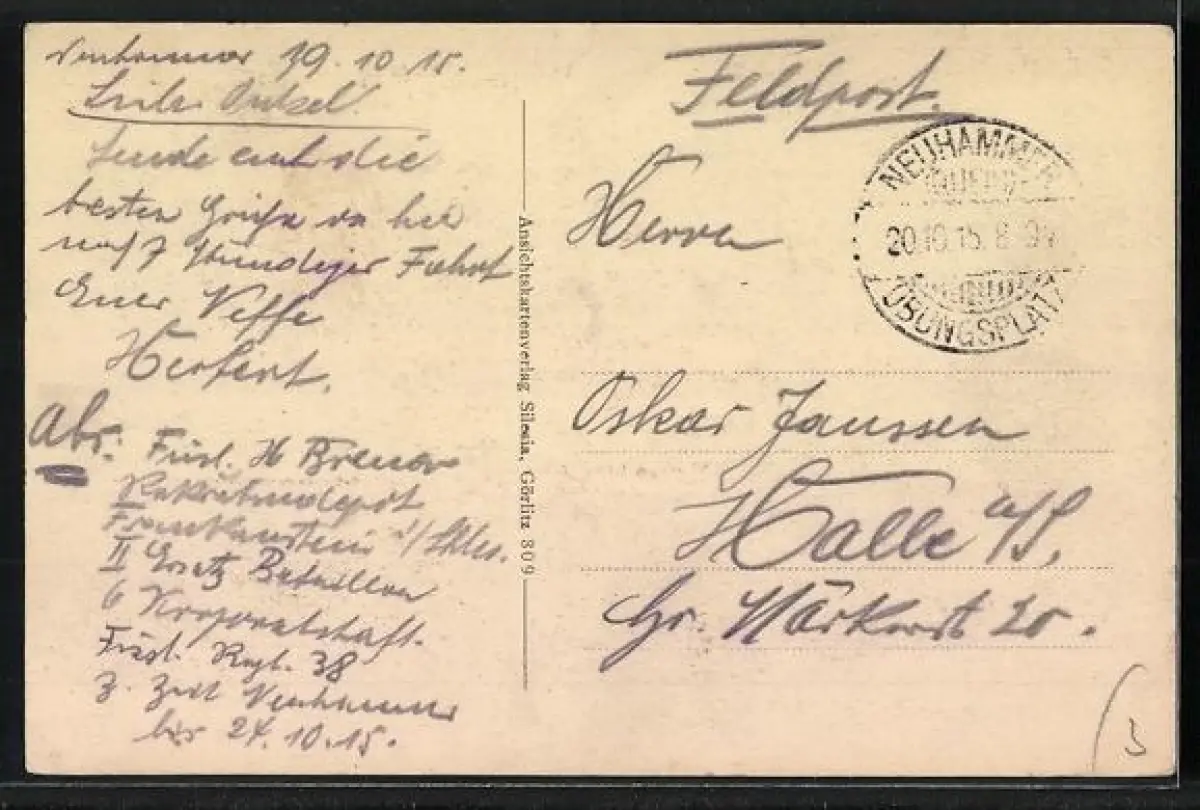 Neuhammer 19.10.15.
Onkel
Sende euch die
besten Grüße von hier
nach 7 stündiger Fahrt
Euer Neffe
Herbert.
Abs: Füsl. H
Rekrutendepot
Frankenstein i/Schles.
II Ersatz Bataillon
6 Korporalschaft.
Füsl. Regt. 38
z. Zeit Neuhammer
bis 24.10.15.
Ansichtskartenverlag Silesia, Görlitz 809
Feldpost.
NEUHAMMER
20.10.15. 8
ÜBUNGSPLATZ
Herrn
Oskar Janssen
Halle a/S,
Gr. 20.
3